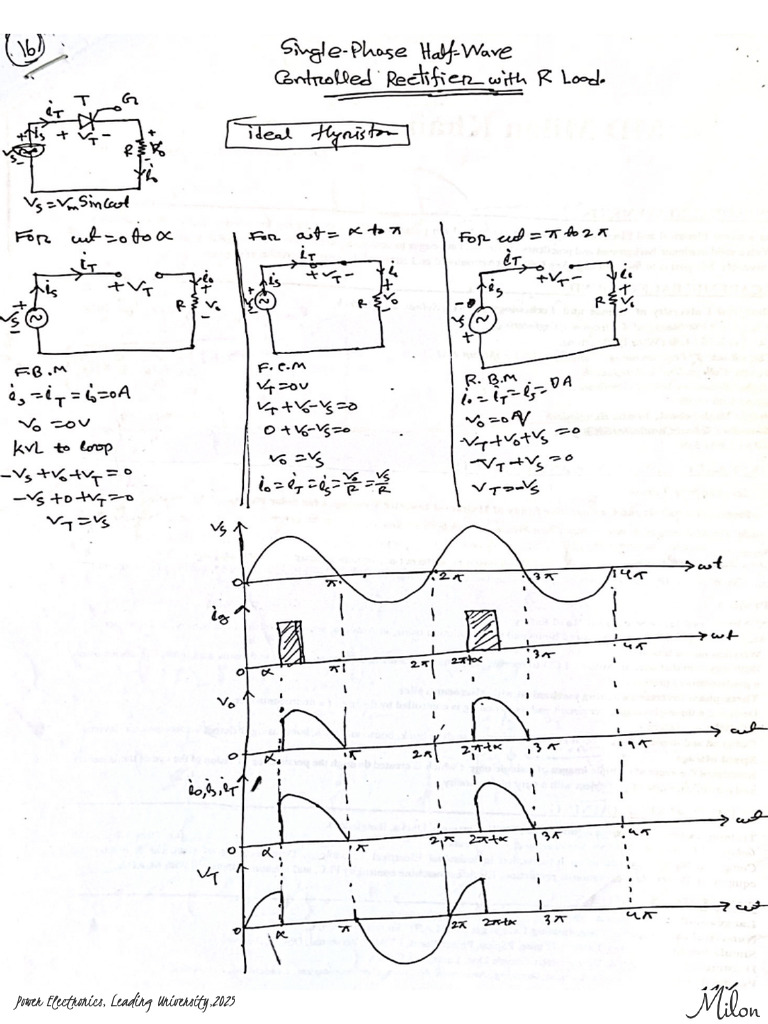 16
Single-Phase Half-Wave
Controlled Rectifier with R Load.
ideal thyristor
T G
iT
+ VT -
is
Vs
+
-
R
+
Vo
-
io
Vs = Vm Sin ωt
FOR ωt = 0 to α
iT
+ VT -
is
io
+
Vs
-
R
+
Vo
-
F.B.M
is = iT = io = 0A
Vo = 0V
KVL to loop
-Vs + Vo + VT = 0
-Vs + 0 + VT = 0
VT = Vs
FOR ωt = α to π
iT
+ VT -
is
io
+
Vs
-
R
+
Vo
-
F.C.M
VT = 0V
VT + Vo - Vs = 0
0 + Vo - Vs = 0
Vo = Vs
io = iT = is = Vo/R = Vs/R
FOR ωt = π to 2π
iT
+ VT -
is
io
-
Vs
+
R
+
Vo
-
R.B.M
io = iT = is = 0A
Vo = 0V
VT + Vo + Vs = 0
VT + Vs = 0
VT = -Vs
Vs
0 π 2π 3π 4π ωt
ig
0 α π 2π 2π+α 3π 4π ωt
Vo
0 α π 2π 2π+α 3π 4π ωt
io, is, iT
0 α π 2π 2π+α 3π 4π ωt
VT
0 α π 2π 2π+α 3π 4π ωt
Power Electronics, Leading University, 2025
Milon